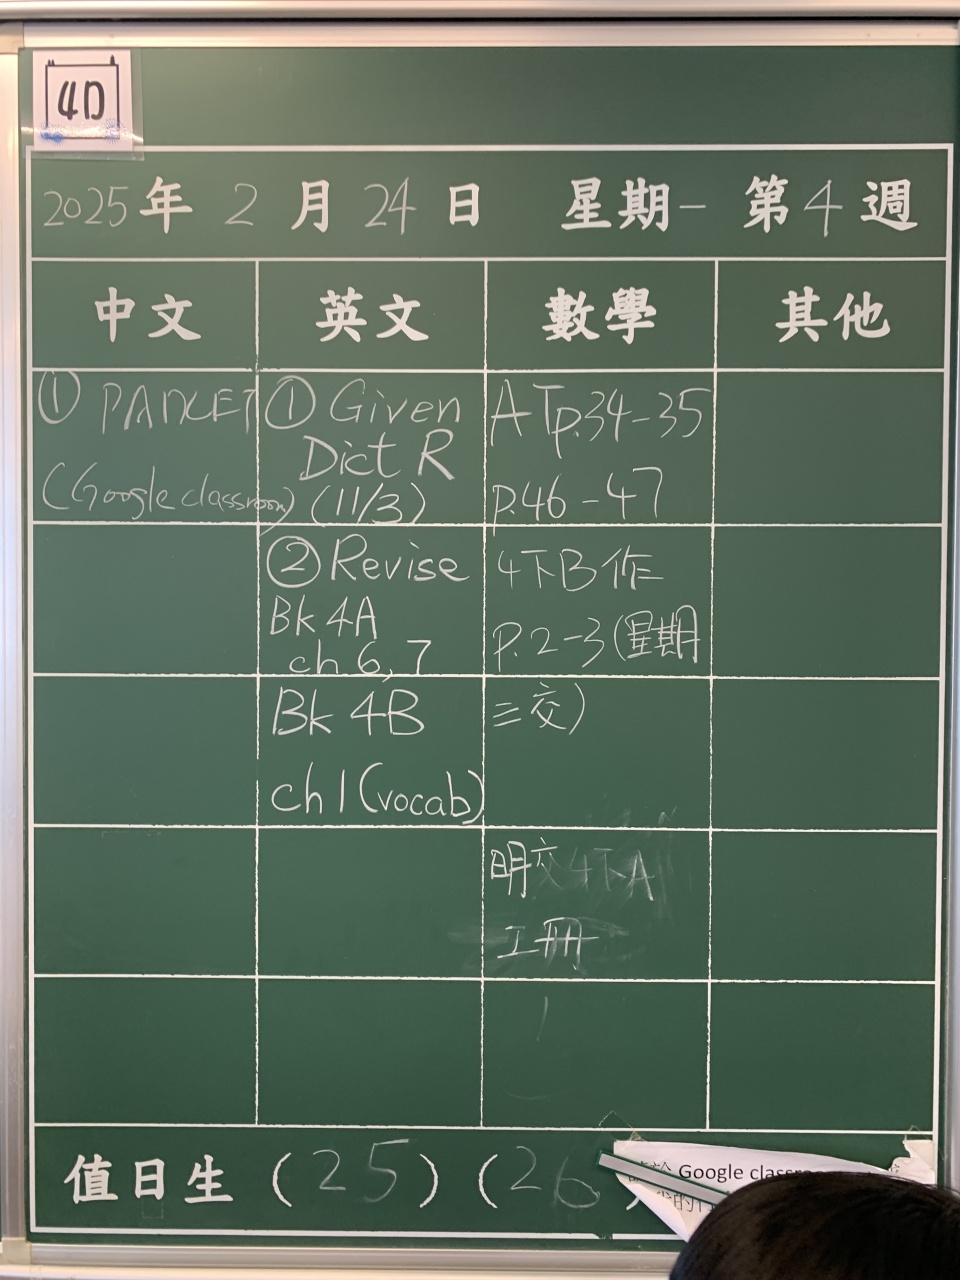 4D
2025年 2 月 24 日 星期一 第 4 週
中文 英文 數學 其他
① PADLET
(Google classroom)
① Given
Dict R
(11/3)
② Revise
Bk 4A
ch 6, 7
Bk 4B
ch 1 (vocab)
AT p.34-35
p.46-47
4下B 作
P.2-3 (星期
三交)
明交 4下A
工冊
值日生 (25) (26
Google classroom